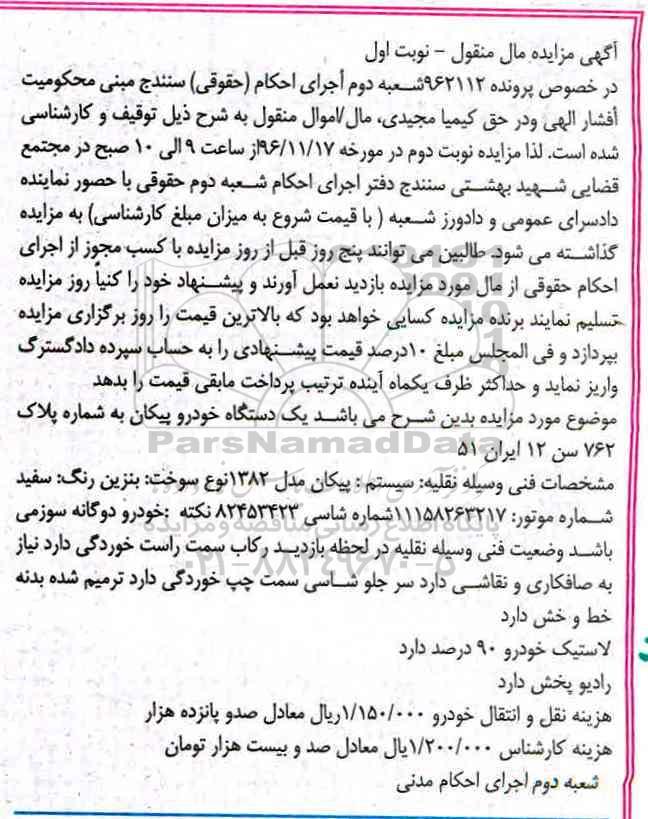 آگهی مزایده مال منقول - نوبت اول
در خصوص پرونده ۹۶۲۱۱۲شعبه دوم أجرای احکام (حقوقی) سنندج مبنی محکومیت
أفشار الهی ودر حق کیمیا مجیدی، مال/اموال منقول به شرح ذیل توقیف و کارشناسی
شده است. لذا مزایده نوبت دوم در مورخه ۹۶/۱۱/۱۷از ساعت ۹ الی ۱۰ صبح در مجتمع
قضایی شهید بهشتی سنندج دفتر اجرای احکام شعبه دوم حقوقی با حصور نماینده
دادسرای عمومی و دادورز شعبه ( با قیمت شروع به میزان مبلغ کارشناسی) به مزایده
گذاشته می شود. طالبین می توانند پنج روز قبل از روز مزایده با کسب مجوز از اجرای
احکام حقوقی از مال مورد مزایده بازدید نعمل آورند و پیشنهاد خود را کنیاً روز مزایده
تسلیم نمایند برنده مزایده کسایی خواهد بود که بالاترین قیمت را روز برگزاری مزایده
بپردازد و فی المجلس مبلغ ۱۰درصد قیمت پیشنهادی را به حساب سپرده دادگسترگ
واریز نماید و حداکثر ظرف یکماه آینده ترتیب پرداخت مابقی قیمت را بدهد
موضوع مورد مزایده بدین شرح می باشد یک دستگاه خودرو پیکان به شماره پلاک
۷۶۲ سن ۱۲ ایران ۵۱
مشخصات فنی وسیله نقلیه: سیستم : پیکان مدل ۱۳۸۲نوع سوخت: بنزین رنگ: سفید
شماره موتور: ۱۱۱۵۸۲۶۳۲۱۷شماره شاسی ۸۲۴۵۳۴۲۳ نکته :خودرو دوگانه سوزمی
باشد وضعیت فنی وسیله نقلیه در لحظه بازدید رکاب سمت راست خوردگی دارد نیاز
به صافکاری و نقاشی دارد سر جلو شاسی سمت چپ خوردگی دارد ترمیم شده بدنه
خط و خش دارد
لاستیک خودرو ۹۰ درصد دارد
رادیو پخش دارد
هزینه نقل و انتقال خودرو ۱/۱۵۰/۰۰۰ریال معادل صدو پانزده هزار
هزینه کارشناس ۱/۲۰۰/۰۰۰یال معادل صد و بیست هزار تومان
شعبه دوم اجرای احکام مدنی
ParsNamadData
پایگاه اطلاع رسانی مناقصه و مزایده
۰۲۱-۸۸۳۴۹۶۷۰-۵